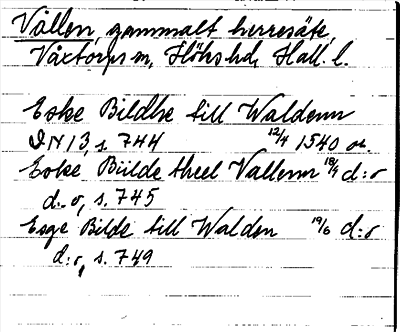 Vallen, gammalt herresäte,
Våxtorps sn, Höks hd, Hall. l.
Eske Bildhe till Waldenn
DN 13, s. 744 12/4 1540 or.
Eske Biilde theel Vallenn 18/4 d:o
d:o, s. 745
Esge Bilde till Walden 19/6 d:o
d:o, s. 749